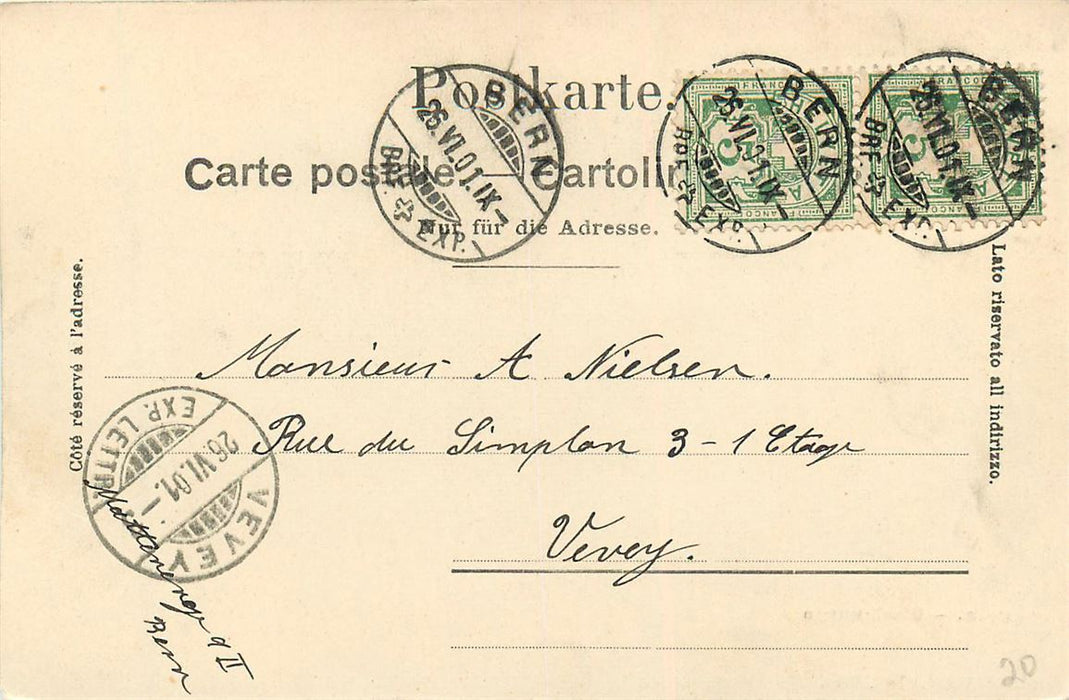 Postkarte.
Carte postale — Cartolina
Nur für die Adresse.
BERN
26.VI.01.IX-
BRF. EXP.
BERN
26.VI.01.IX-
BRF. EXP.
BERN
26.VI.01.IX-
BRF. EXP.
FRANCO
5
FRANCO
FRANCO
5
FRANCO
Côté réservé à l'adresse.
Lato riservato all indirizzo.
Monsieur A Nielsen.
Rue du Simplon 3 - 1 Etage
Vevey.
EXP. LETTR.
26.VI.01.-
VEVEY
9 II
Bern
20